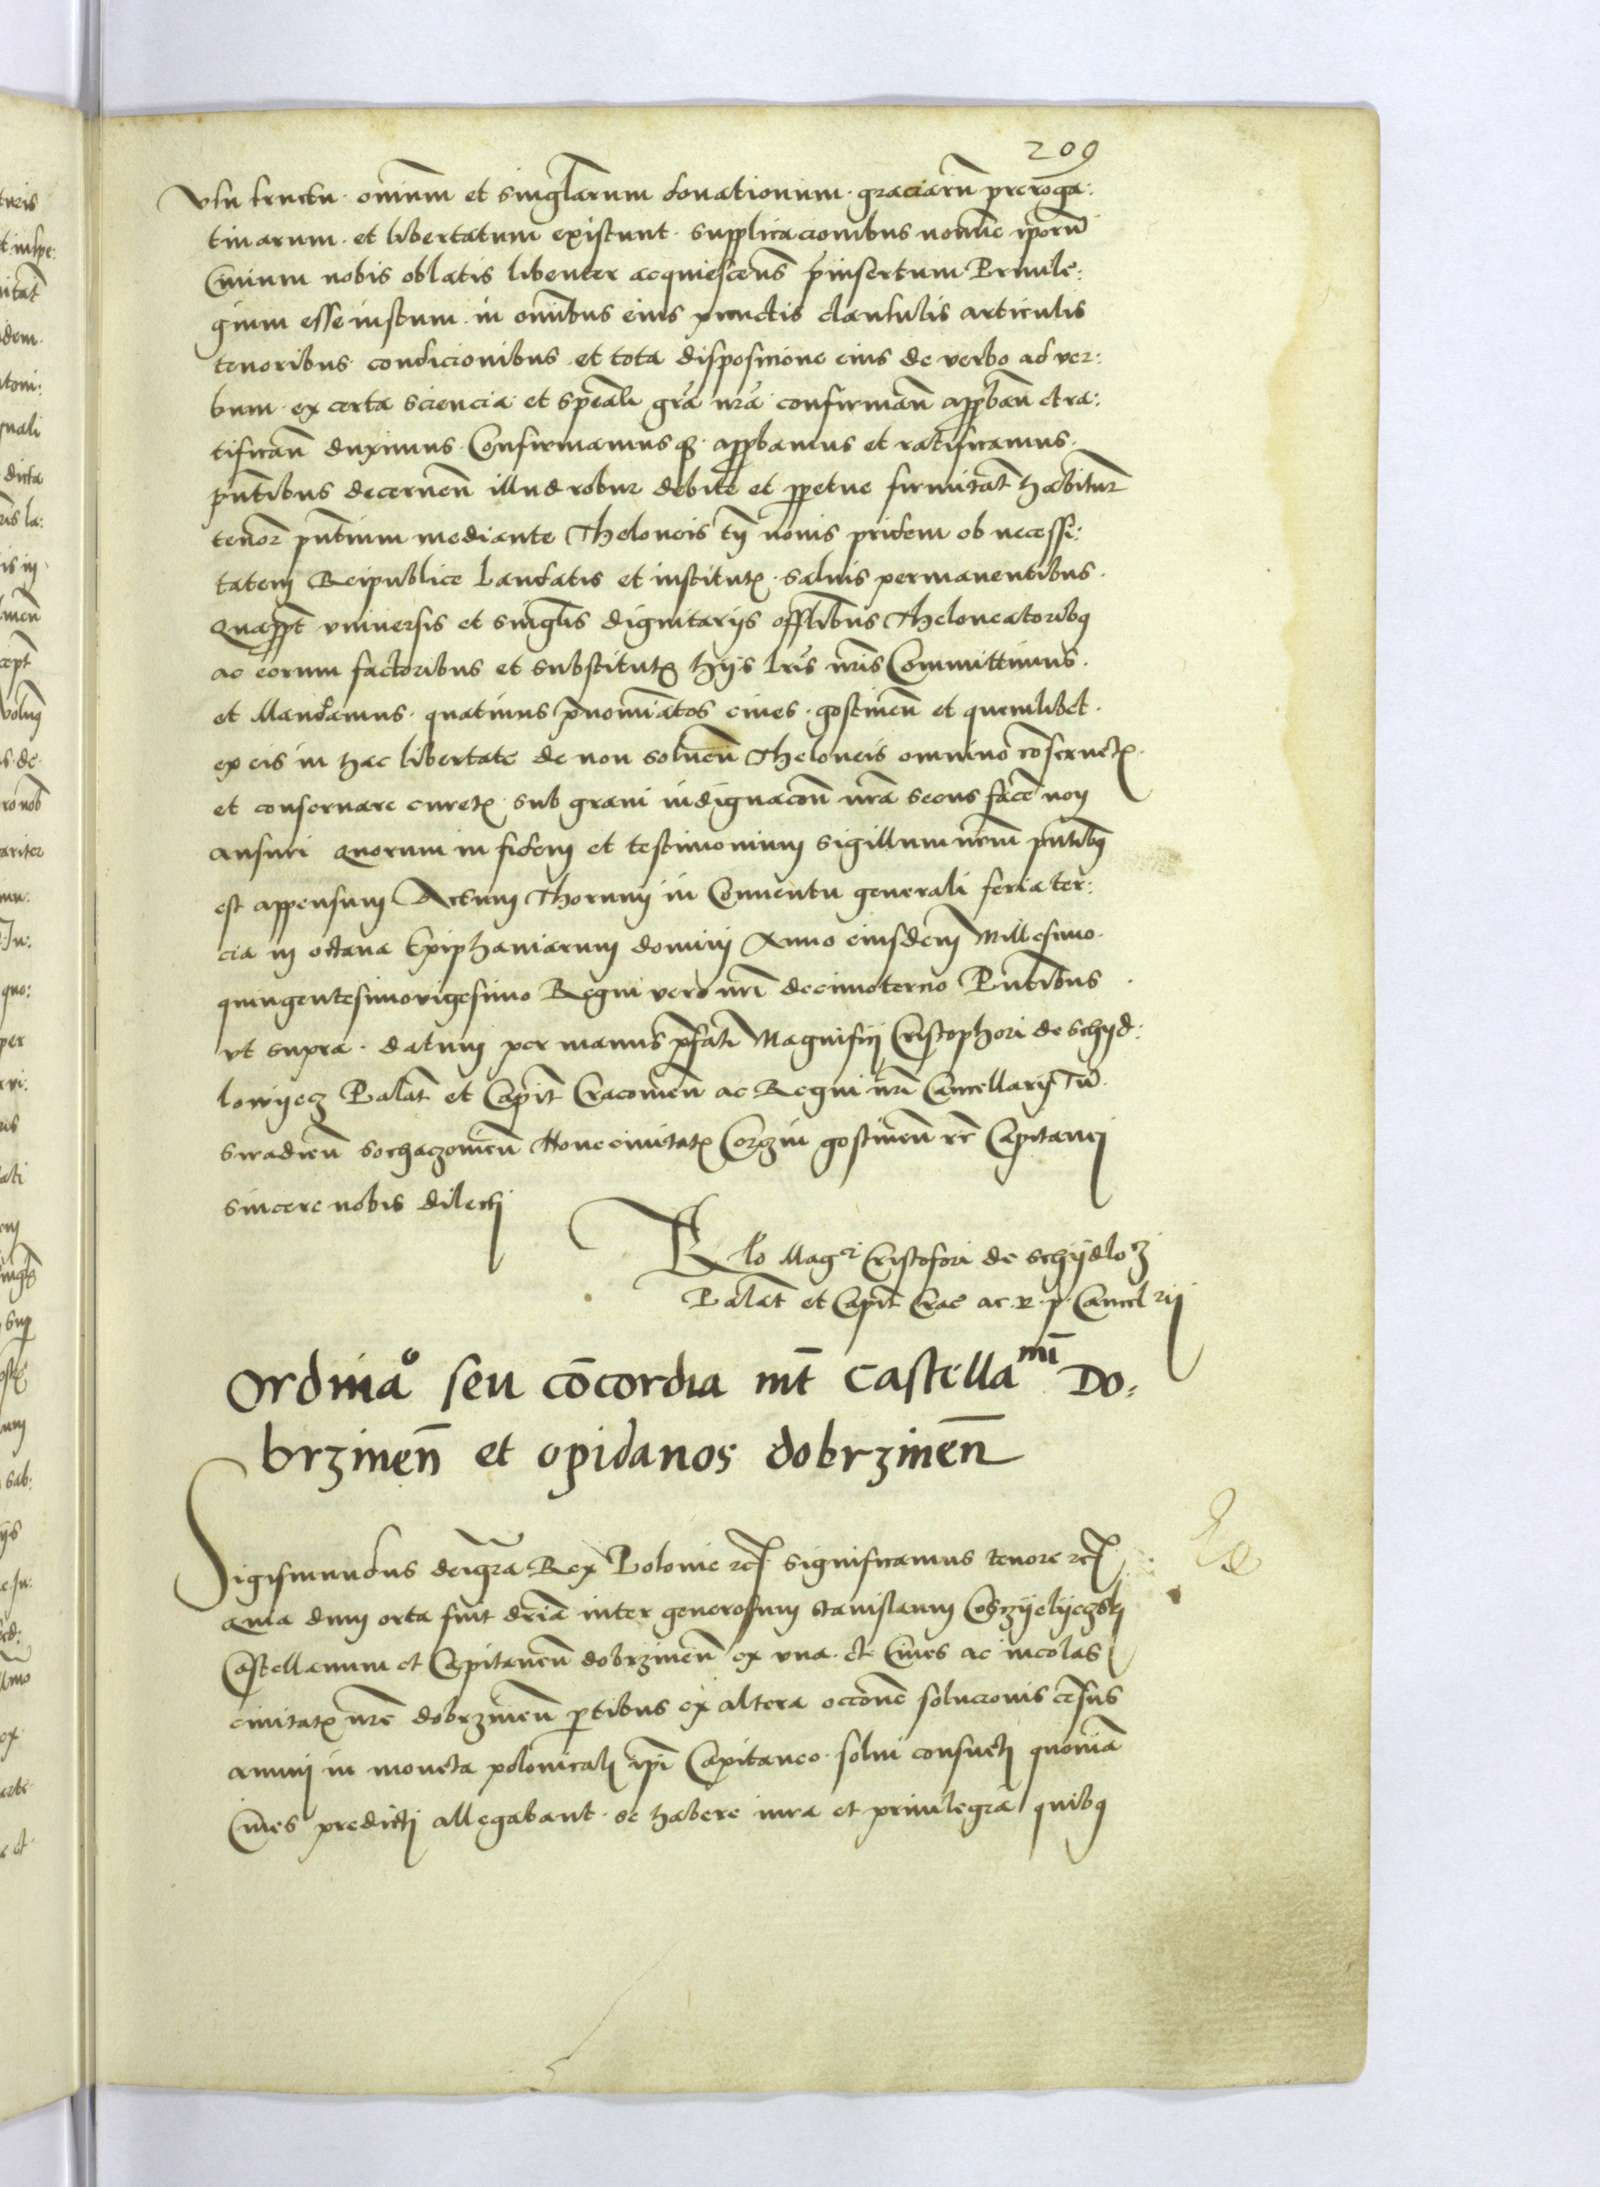 209
vsu fructu. omnium et singularum donationum. graciarum preroga:
tiuarum. et libertatum existunt. supplicacionibus nomine ipsorum
Ciuium nobis oblatis libenter acquiescens p̄insertum Priuile:
gium esse iustum. in omnibus eius punctis clausulis articulis
tenoribus condicionibus et tota disposicione eius de verbo ad ver:
bum. ex certa sciencia et sp̄eali gr̄a nr̄a confirmān app̄bān et ra:
tificān duximus. Confirmamus q3. app̄bamus et ratificamus.
pn̄tibus decernen̄ illud robur debite et p̱petue firmitat̄ habitur̄
tenor̄ pn̄tium mediante Theloneis tn̄ nouis pridem ob necessi:
tatem Reipublice Laudatis et institut̄. saluis permanentibus.
Quap̱pt̄ vniuersis et singl̄is dignitarijs offl̄ibus Theloneatoribꝫ
ac eorum factoribus et substitut̄ hijs lr̄is nr̄is Committimus.
et Mandamus. quatinus p̄nomīatos ciues. gostinen̄ et quemlibet.
ex eis in hac libertate de non soluen̄ Theloneis omnino cōseruet̄.
et conseruare curet̄. sub graui indignacōn nr̄a secus facē non
ansuri Quorum in fidem et testimonium sigillum nr̄um pn̄tibꝫ
est appensum Actum Thorunij in Conuentu generali feria ter:
cia in octaua Epiphaniarum domini Anno eiusdem Millesimo.
quingentesimovigesimo Regni vero nr̄i decimotercio Pn̄tibus
vt supra. datum per manus p̄fati Magnifici Cristophori de Schyd:
lowyecz Palat̄ et Capit̄ Cracouien̄ ac Regni nr̄i Cancellarij
siradien̄ sochaczouien̄ Noue ciuitat̄ Corzin gostinen̄ Capitanei
sincere nobis dilecti
Rlo Mag^ci Cristofori de Schydlo3
Palat̄ et Capit̄ Crac̄ ac. R. p. Cancl rij
Ordina^o seu cōcordia int̄ Castella^nū Do:
brzinen̄ et opidanos dobrzinen̄
Sigismundus deigr̄a Rex Polonie rc̄ significamus tenore rc̄
Quia dum orta fuit dr̄ia inter generosum Stanislaum Coszyelyeczski
Castellanum et Capitaneū dobrzinen̄ ex vna. et Ciues ac incolas
ciuitat̄ nr̄e dobrzinen̄ p̱tibus ex altera occōne solucionis cēsus
annui in moneta polonicali ip̄i Capitaneo. solui consueti quoniā
Ciues predicti allegabant. se habere iura et priuilegia quibꝫ